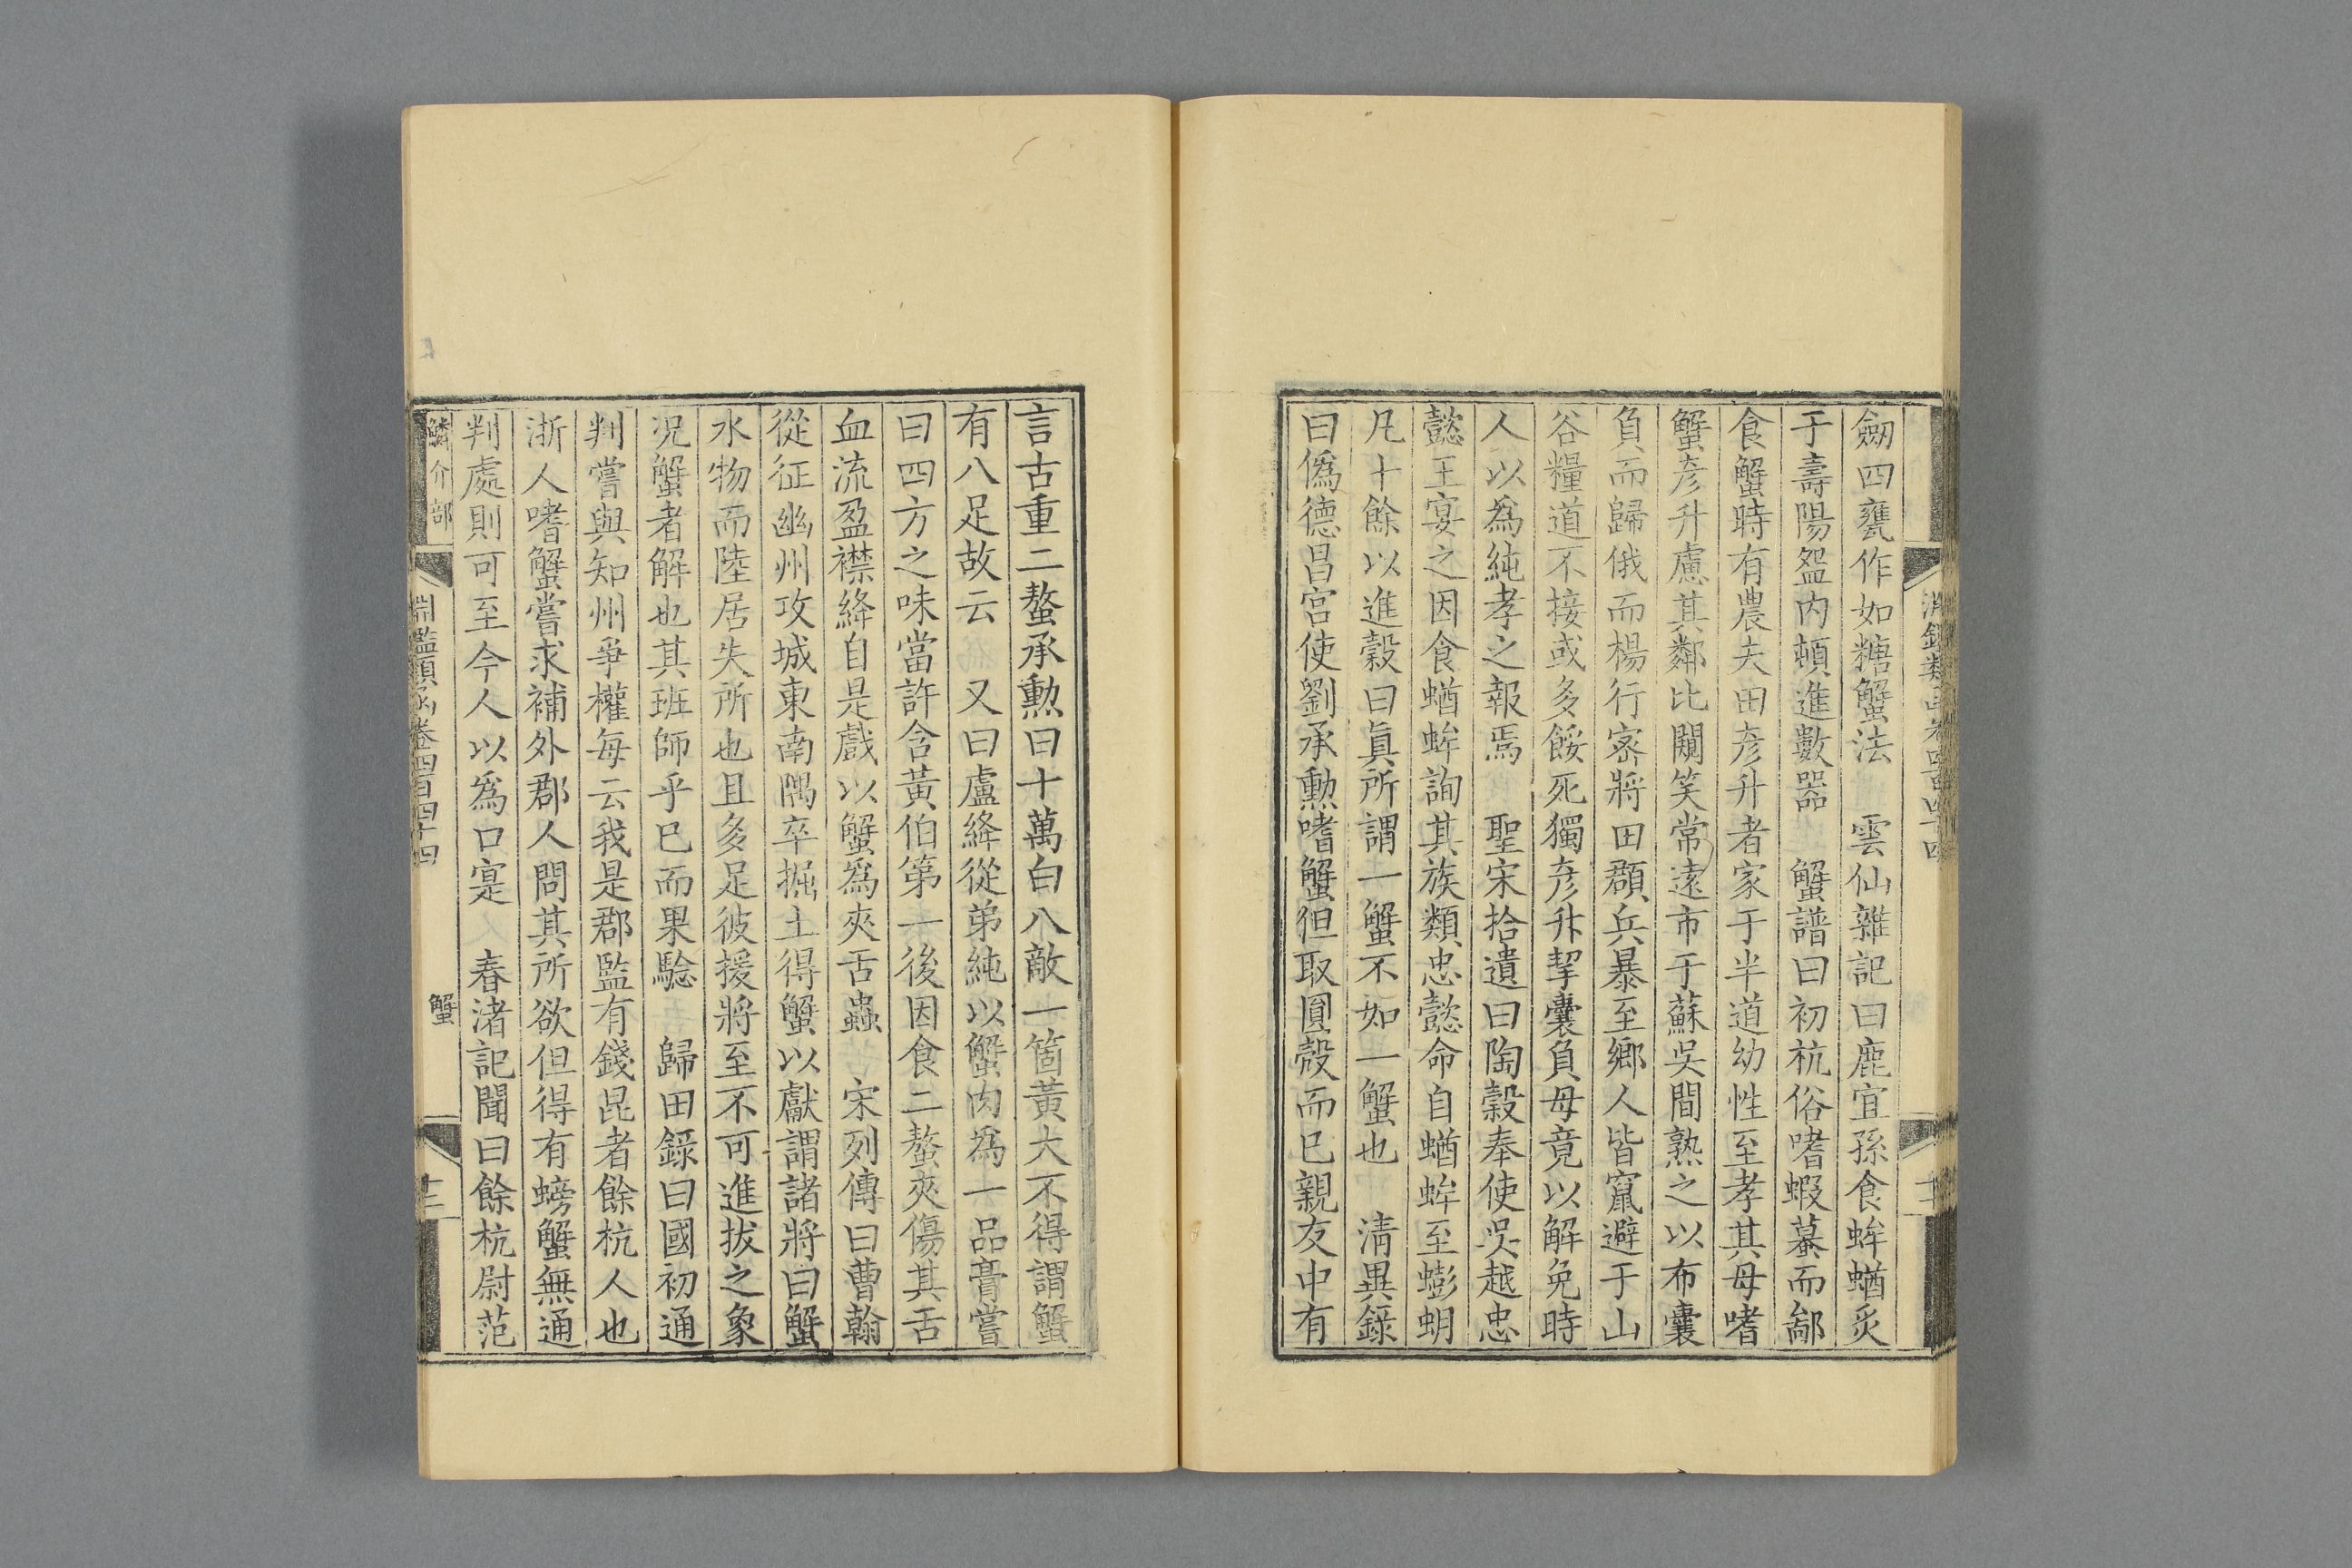 劒四甕作如糖蟹法　雲仙雜記曰鹿宜孫食蛑蝤炙
于壽陽盌内頓進數器　蟹譜曰初杭俗嗜蝦蟇而鄙
食蟹時有農夫田彥升者家于半道幼性至孝其母嗜
蟹彥升慮其鄰比闚笑常遠市于蘇吳間熟之以布囊
負而歸俄而楊行密將田頵兵暴至鄉人皆竄避于山
谷糧道不接或多餒死獨彥升挈囊負母竟以解免時
人以爲純孝之報焉　聖宋拾遺曰陶穀奉使吳越忠
懿王宴之因食蝤蛑詢其族類忠懿命自蝤蛑至蟛蚏
凡十餘以進穀曰眞所謂一蟹不如一蟹也　淸異錄
曰僞德昌宮使劉承勳嗜蟹但取圓殼而巳親友中有
言古重二螯承勳曰十萬白八敵一箇黃大不得謂蟹
有八足故云　又曰盧絳從弟純以蟹肉爲一品膏嘗
曰四方之味當許含黃伯第一後因食二螯夾傷其舌
血流盈襟絳自是戲以蟹爲夾舌蟲　宋列傳曰曹翰
從征幽州攻城東南隅卒掘土得蟹以獻謂諸將曰蟹
水物而陸居失所也且多足彼援將至不可進拔之象
况蟹者解也其班師乎巳而果驗　歸田錄曰國初通
判嘗與知州爭權每云我是郡監有錢昆者餘杭人也
浙人嗜蟹嘗求補外郡人問其所欲但得有螃蟹無通
判處則可至今人以爲口寔　春渚記聞曰餘杭尉范
鱗介部　淵鑑類函卷四百四十四　蟹　十二